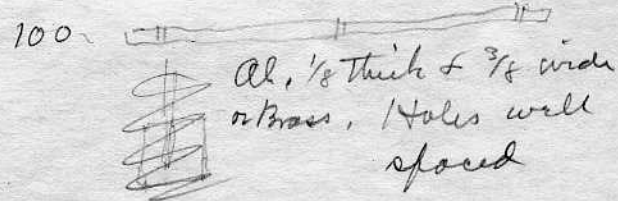 100
Al, 1/8 thick & 3/8 wide
or Brass, Holes well
spaced